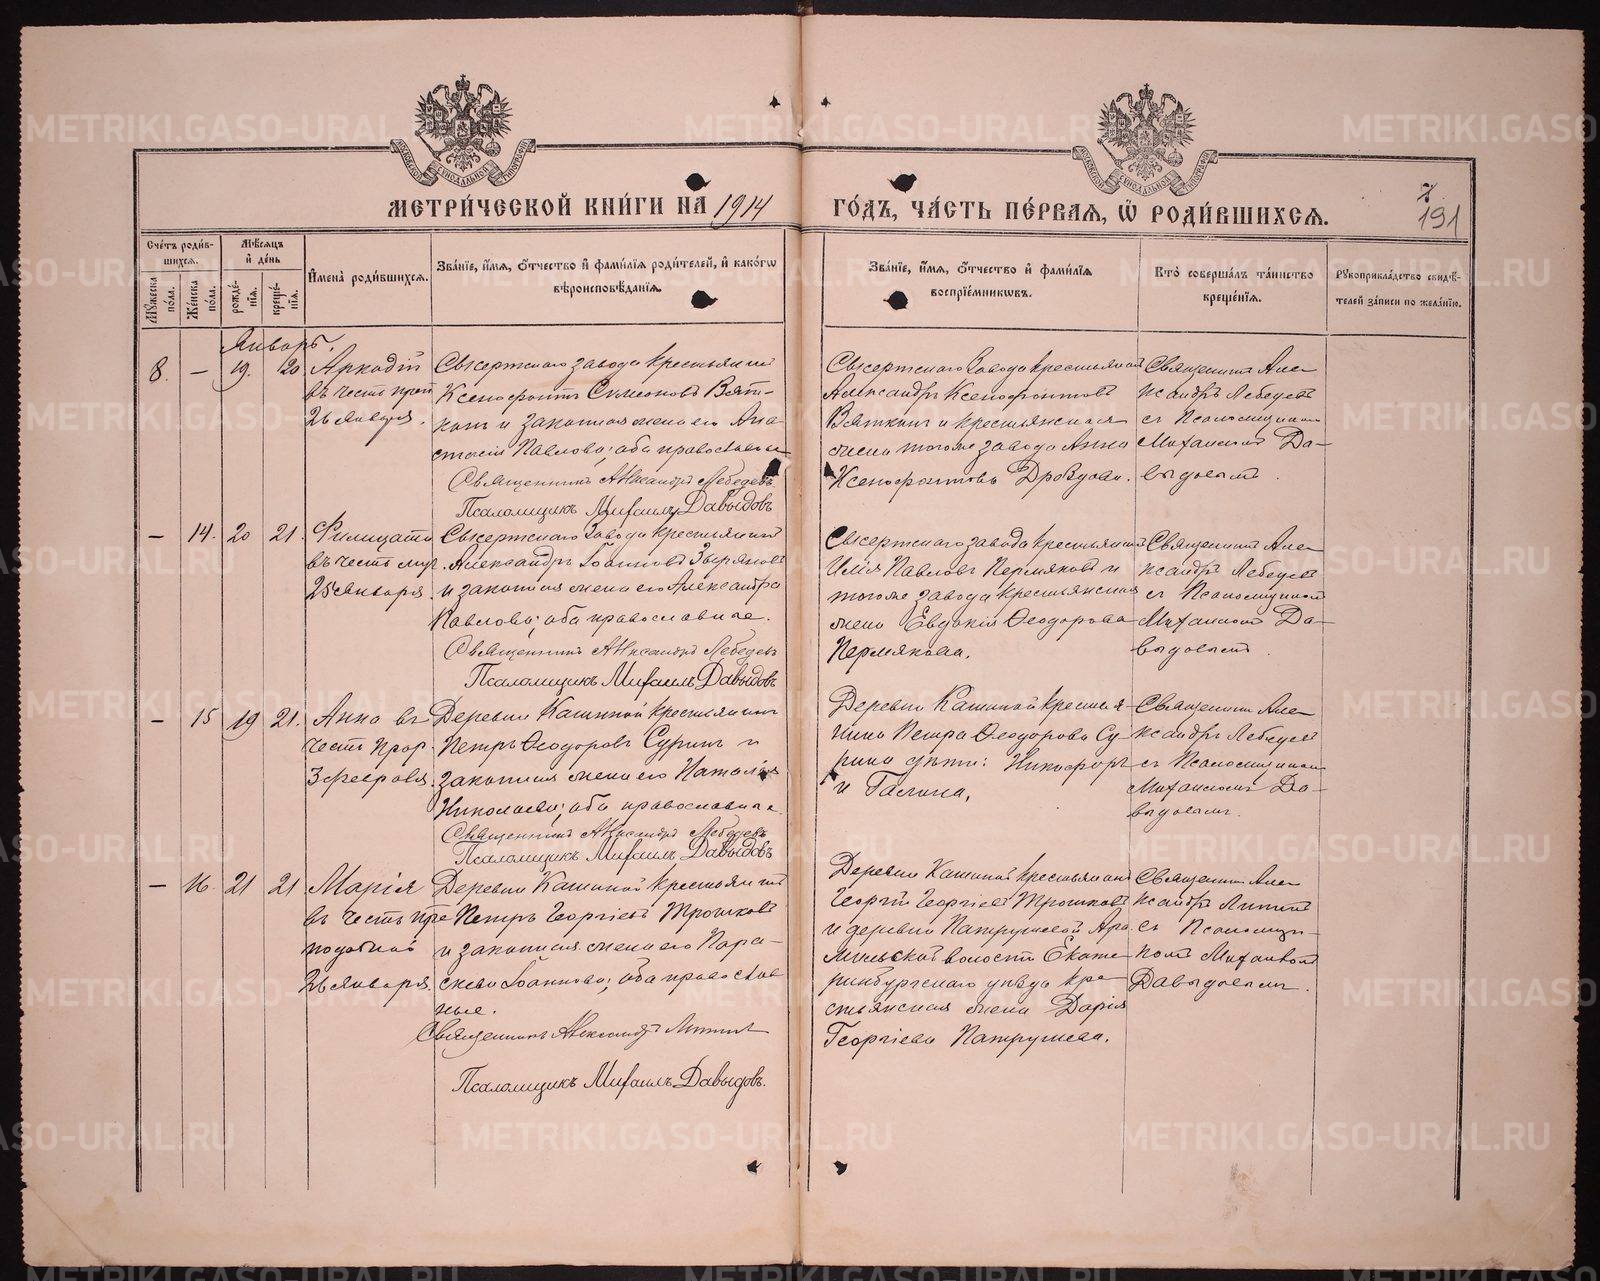 МЕТРИ́ЧЕСКОЙ КНИ́ГИ НА 1914 ГО́ДЪ, ЧА́СТЬ ПЕ́РВАЯ, Ѿ РОДИ́ВШИХСЯ.
191
Сче́тъ роди́в-
шихся.
Мѣ́сяцъ
и҆ де́нь
Мꙋ́жеска
по́ла.
Же́нска
по́ла.
рожде́-
нїѧ.
креще́-
нїѧ.
И҆мена̀ роди́вшихся.
Зва́нїе, и҆́мя, ѻ҆́тчество и҆ фами́лїя роди́телей, и҆ како́гѡ
вѣроисповѣ́данїя.
Зва́нїе, и҆́мя, ѻ҆́тчество и҆ фами́лїя
воспрїе́мникѡвъ.
Кто̀ соверша́лъ та́инство
креще́нїя.
Рꙋкоприкла́дство свидѣ́-
телей за́писи по жела́нїю.
Январь.
8. — 19. 20.
Аркадій
въ честь преп
26 января.
Сысертскаго завода крестьянинъ
Ксенофонтъ Симеоновъ Вят-
кинъ и законная жена его Ана-
стасія Павлова; оба православные
Священникъ Александръ Лебедевъ
Псаломщикъ Михаилъ Давыдовъ
Сысертскаго завода крестьянинъ
Александръ Ксенофонтовъ
Вяткинъ и крестьянская
жена тогоже завода Анна
Ксенофонтова
Священникъ Але-
ксандръ Лебедевъ
съ Псаломщикомъ
Михаиломъ Да-
выдовымъ.
— 14. 20 21.
Филицата
въ честь муч.
25 января.
Сысертскаго завода крестьянинъ
Александръ Іоанновъ Зыряновъ
и законная жена его Александра
Павлова; оба православные.
Священникъ Александръ Лебедевъ
Псаломщикъ Михаилъ Давыдовъ
Сысертскаго завода крестьянинъ
Илія Павловъ Пермяковъ и
тогоже завода крестьянская
жена Евдокія Ѳеодорова
Пермякова.
Священникъ Але-
ксандръ Лебедевъ
съ Псаломщикомъ
Михаиломъ Да-
выдовымъ.
— 15 19 21.
Анна въ
честь прор.
3 февраля.
Деревни Кашиной крестьянинъ
Петръ Ѳеодоровъ Суринъ и
законная жена его Наталія
Николаева; оба православные
Священникъ Александръ Лебедевъ
Псаломщикъ Михаилъ Давыдовъ
Деревни Кашиной крестья-
нина Петра Ѳеодорова Су-
рина дѣти: Никифоръ
и Галина.
Священникъ Але-
ксандръ Лебедевъ
съ Псаломщикомъ
Михаиломъ Да-
выдовымъ.
— 16 21 21
Марія
въ честь пре-
подобной
26 января.
Деревни Кашиной крестьянинъ
Петръ Георгіевъ Трошковъ
и законная жена его Пара-
скева Іоаннова; оба православ-
ные.
Священникъ Александръ
Псаломщикъ Михаилъ Давыдовъ.
Деревни Кашиной крестьянинъ
Георгій Георгіевъ Трошковъ
и деревни Патрушевой Ара-
мильской волости Екате-
ринбургскаго уѣзда кре-
стьянская жена Дарія
Георгіева Патрушева.
Священникъ Але-
ксандръ
съ Псаломщи-
комъ Михаиломъ
Давыдовымъ.
METRIKI.GASO-URAL.RU